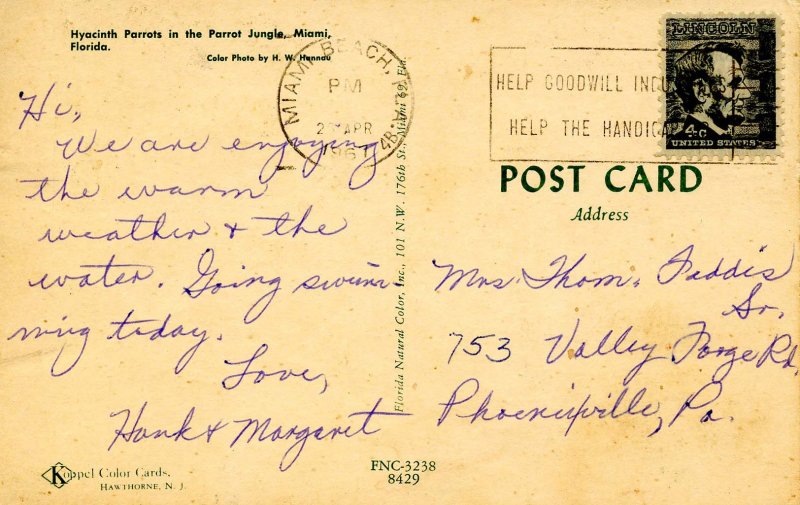 Hyacinth Parrots in the Parrot Jungle, Miami,
Florida.
Color Photo by H. W. Hannau
Hi,
We are enjoying
the warm
weather & the
water. Going swim-
ming today.
Love,
Hank & Margaret
Koppel Color Cards.
HAWTHORNE, N. J.
Florida Natural Color, Inc., 101 N.W. 176th St., Miami 69, Fla.
MIAMI BEACH,
PM
APR
1961
HELP GOODWILL
HELP THE
LINCOLN
4c
UNITED STATES
POST CARD
Address
Mrs. Thom. Faddis
Sr.
753 Valley Forge Rd.
Phoenixville, Pa.
FNC-3238
8429